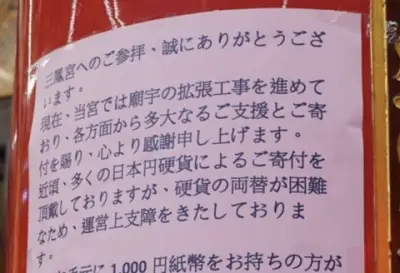 三鳳宮へのご参拝、誠にありがとうござ
います。
現在、当宮では廟宇の拡張工事を進めて
おり、各方面から多大なるご支援とご寄
付を賜り、心より感謝申し上げます。
近頃、多くの日本円硬貨によるご寄付を
頂戴しておりますが、硬貨の両替が困難
なため、運営上支障をきたしておりま
す。
手元に 1,000 円紙幣をお持ちの方が